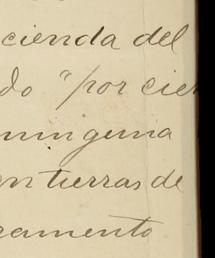 cienda del
do "por cie
ninguna
en tierras de
camento